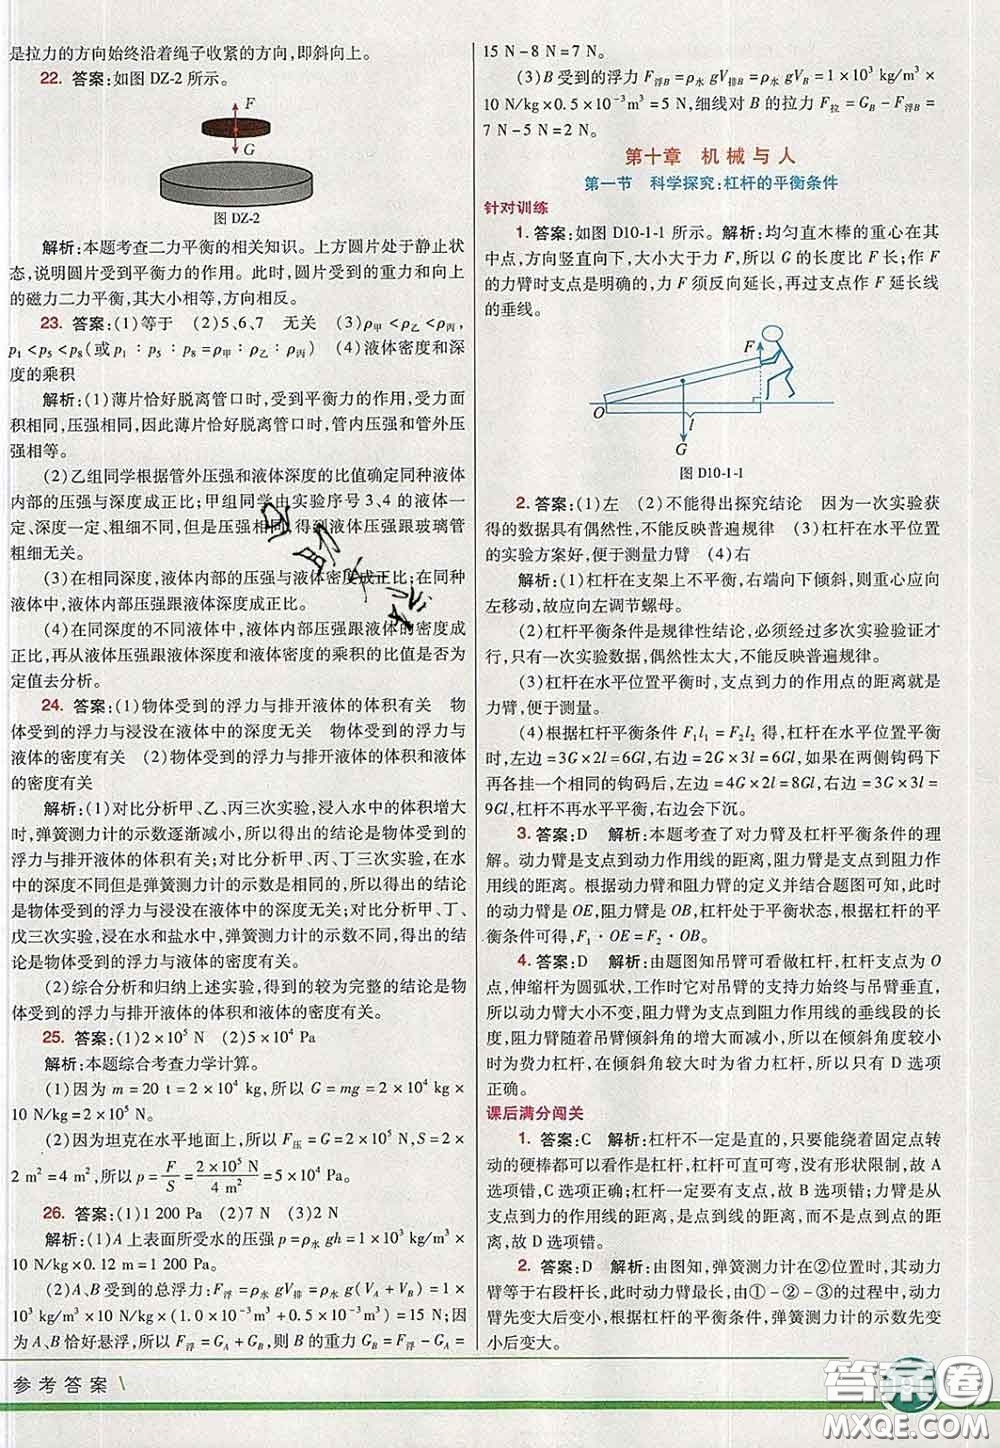 是拉力的方向始终沿着绳子收紧的方向,即斜向上。
22. 答案:如图 DZ-2 所示。
F
G
图 DZ-2
解析:本题考查二力平衡的相关知识。上方圆片处于静止状
态,说明圆片受到平衡力的作用。此时,圆片受到的重力和向上
的磁力二力平衡,其大小相等,方向相反。
23. 答案:(1)等于 (2)5、6、7 无关 (3)ρ甲<ρ乙<ρ丙,
p₁<p₅<p₈(或p₁∶p₅∶p₈=ρ甲∶ρ乙∶ρ丙) (4)液体密度和深
度的乘积
解析:(1)薄片恰好脱离管口时,受到平衡力的作用,受力面
积相同,压强相同,因此薄片恰好脱离管口时,管内压强和管外压
强相等。
(2)乙组同学根据管外压强和液体深度的比值确定同种液体
内部的压强与深度成正比;甲组同学由实验序号 3、4 的液体一
定、深度一定、粗细不同,但是压强相同,得到液体压强跟玻璃管
粗细无关。
(3)在相同深度,液体内部的压强与液体密度成正比;在同种
液体中,液体内部压强跟液体深度成正比。
(4)在同深度的不同液体中,液体内部压强跟液体的密度成
正比,再从液体压强跟液体深度和液体密度的乘积的比值是否为
定值去分析。
24. 答案:(1)物体受到的浮力与排开液体的体积有关 物
体受到的浮力与浸没在液体中的深度无关 物体受到的浮力与
液体的密度有关 (2)物体受到的浮力与排开液体的体积和液体
的密度有关
解析:(1)对比分析甲、乙、丙三次实验,浸入水中的体积增大
时,弹簧测力计的示数逐渐减小,所以得出的结论是物体受到的
浮力与排开液体的体积有关;对比分析甲、丙、丁三次实验,在水
中的深度不同但是弹簧测力计的示数是相同的,所以得出的结论
是物体受到的浮力与浸没在液体中的深度无关;对比分析甲、丁、
戊三次实验,浸在水和盐水中,弹簧测力计的示数不同,得出的结
论是物体受到的浮力与液体的密度有关。
(2)综合分析和归纳上述实验,得到的较为完整的结论是物
体受到的浮力与排开液体的体积和液体的密度有关。
25. 答案:(1)2×10⁵ N (2)5×10⁴ Pa
解析:本题综合考查力学计算。
(1)因为 m=20 t=2×10⁴ kg,所以 G=mg=2×10⁴ kg×
10 N/kg=2×10⁵ N。
(2)因为坦克在水平地面上,所以 F压=G=2×10⁵ N,S=2×
2 m²=4 m²,所以 p=F/S=2×10⁵ N/4 m²=5×10⁴ Pa。
26. 答案:(1)1 200 Pa (2)7 N (3)2 N
解析:(1)A 上表面所受水的压强 p=ρ水gh=1×10³ kg/m³×
10 N/kg×0.12 m=1 200 Pa。
(2)A、B 受到的总浮力:F浮=ρ水gV排=ρ水g(V_A+V_B)=1×
10³ kg/m³×10 N/kg×(1.0×10⁻³m³+0.5×10⁻³m³)=15 N;因
为 A、B 恰好悬浮,所以 F浮=G_A+G_B,则 B 的重力 G_B=F浮-G_A=
15 N-8 N=7 N。
(3)B 受到的浮力 F浮B=ρ水gV排B=ρ水gV_B=1×10³ kg/m³×
10 N/kg×0.5×10⁻³m³=5 N,细线对 B 的拉力 F拉=G_B-F浮B=
7 N-5 N=2 N。
第十章 机械与人
第一节 科学探究:杠杆的平衡条件
针对训练
1. 答案:如图 D10-1-1 所示。解析:均匀直木棒的重心在其
中点,方向竖直向下,大小大于力 F,所以 G 的长度比 F 长;作 F
的力臂时支点是明确的,力 F 须反向延长,再过支点作 F 延长线
的垂线。
F
O
l
G
图 D10-1-1
2. 答案:(1)左 (2)不能得出探究结论 因为一次实验获
得的数据具有偶然性,不能反映普遍规律 (3)杠杆在水平位置
的实验方案好,便于测量力臂 (4)右
解析:(1)杠杆在支架上不平衡,右端向下倾斜,则重心应向
左移动,故应向左调节螺母。
(2)杠杆平衡条件是规律性结论,必须经过多次实验验证才
行,只有一次实验数据,偶然性太大,不能反映普遍规律。
(3)杠杆在水平位置平衡时,支点到力的作用点的距离就是
力臂,便于测量。
(4)根据杠杆平衡条件 F₁l₁=F₂l₂ 得,杠杆在水平位置平衡
时,左边=3G×2l=6Gl,右边=2G×3l=6Gl,如果在两侧钩码下
再各挂一个相同的钩码后,左边=4G×2l=8Gl,右边=3G×3l=
9Gl,杠杆不再水平平衡,右边会下沉。
3. 答案:D 解析:本题考查了对力臂及杠杆平衡条件的理
解。动力臂是支点到动力作用线的距离,阻力臂是支点到阻力作
用线的距离。根据动力臂和阻力臂的定义并结合题图可知,此时
的动力臂是 OE,阻力臂是 OB,杠杆处于平衡状态,根据杠杆的平
衡条件可得,F₁·OE=F₂·OB。
4. 答案:D 解析:由题图知吊臂可看做杠杆,杠杆支点为 O
点,伸缩杆为圆弧状,工作时它对吊臂的支持力始终与吊臂垂直,
所以动力臂大小不变,动力臂为支点到阻力作用线的垂线段的长
度,阻力臂随着吊臂倾斜角的增大而减小,所以在倾斜角度较小
时为费力杠杆,在倾斜角较大时为省力杠杆,所以有 D 选项
正确。
课后满分闯关
1. 答案:C 解析:杠杆不一定是直的,只要能绕着固定点转
动的硬棒都可以看作是杠杆,杠杆可直可弯,没有形状限制,故 A
选项错,C 选项正确;杠杆一定要有支点,故 B 选项错;力臂是从
支点到力的作用线的距离,是点到线的距离,而不是点到点的距
离,故 D 选项错。
2. 答案:D 解析:由图知,弹簧测力计在②位置时,其动力
臂等于右段杆长,此时动力臂最长,故由①-②-③的过程中,动力
臂先变大后变小,根据杠杆的平衡条件,弹簧测力计的示数先变
小后变大。
参考答案
答案圈
MXQE.COM